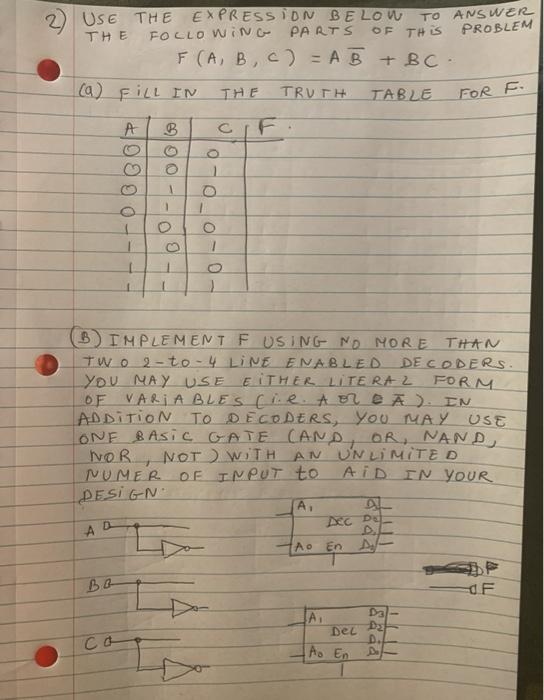 2) USE THE EXPRESSION BELOW TO ANSWER
THE FOLLOWING PARTS OF THIS PROBLEM
F(A, B, C) = A B̅ + BC.
(a) FILL IN THE TRUTH TABLE FOR F.
A B C F.
0 0 0
0 0 1
0 1 0
0 1 1
1 0 0
1 0 1
1 1 0
1 1 1
(B) IMPLEMENT F USING NO MORE THAN
TWO 2-to-4 LINE ENABLED DECODERS.
YOU MAY USE EITHER LITERAL FORM
OF VARIABLES (i.e. A or A̅). IN
ADDITION TO DECODERS, YOU MAY USE
ONE BASIC GATE (AND, OR, NAND,
NOR, NOT) WITH AN UNLIMITED
NUMER OF INPUT to AID IN YOUR
DESIGN.
A
A1 D
Dec D2
D1
A0 En D0
B
F
C
A1 D3
Dec D2
D1
A0 En D0